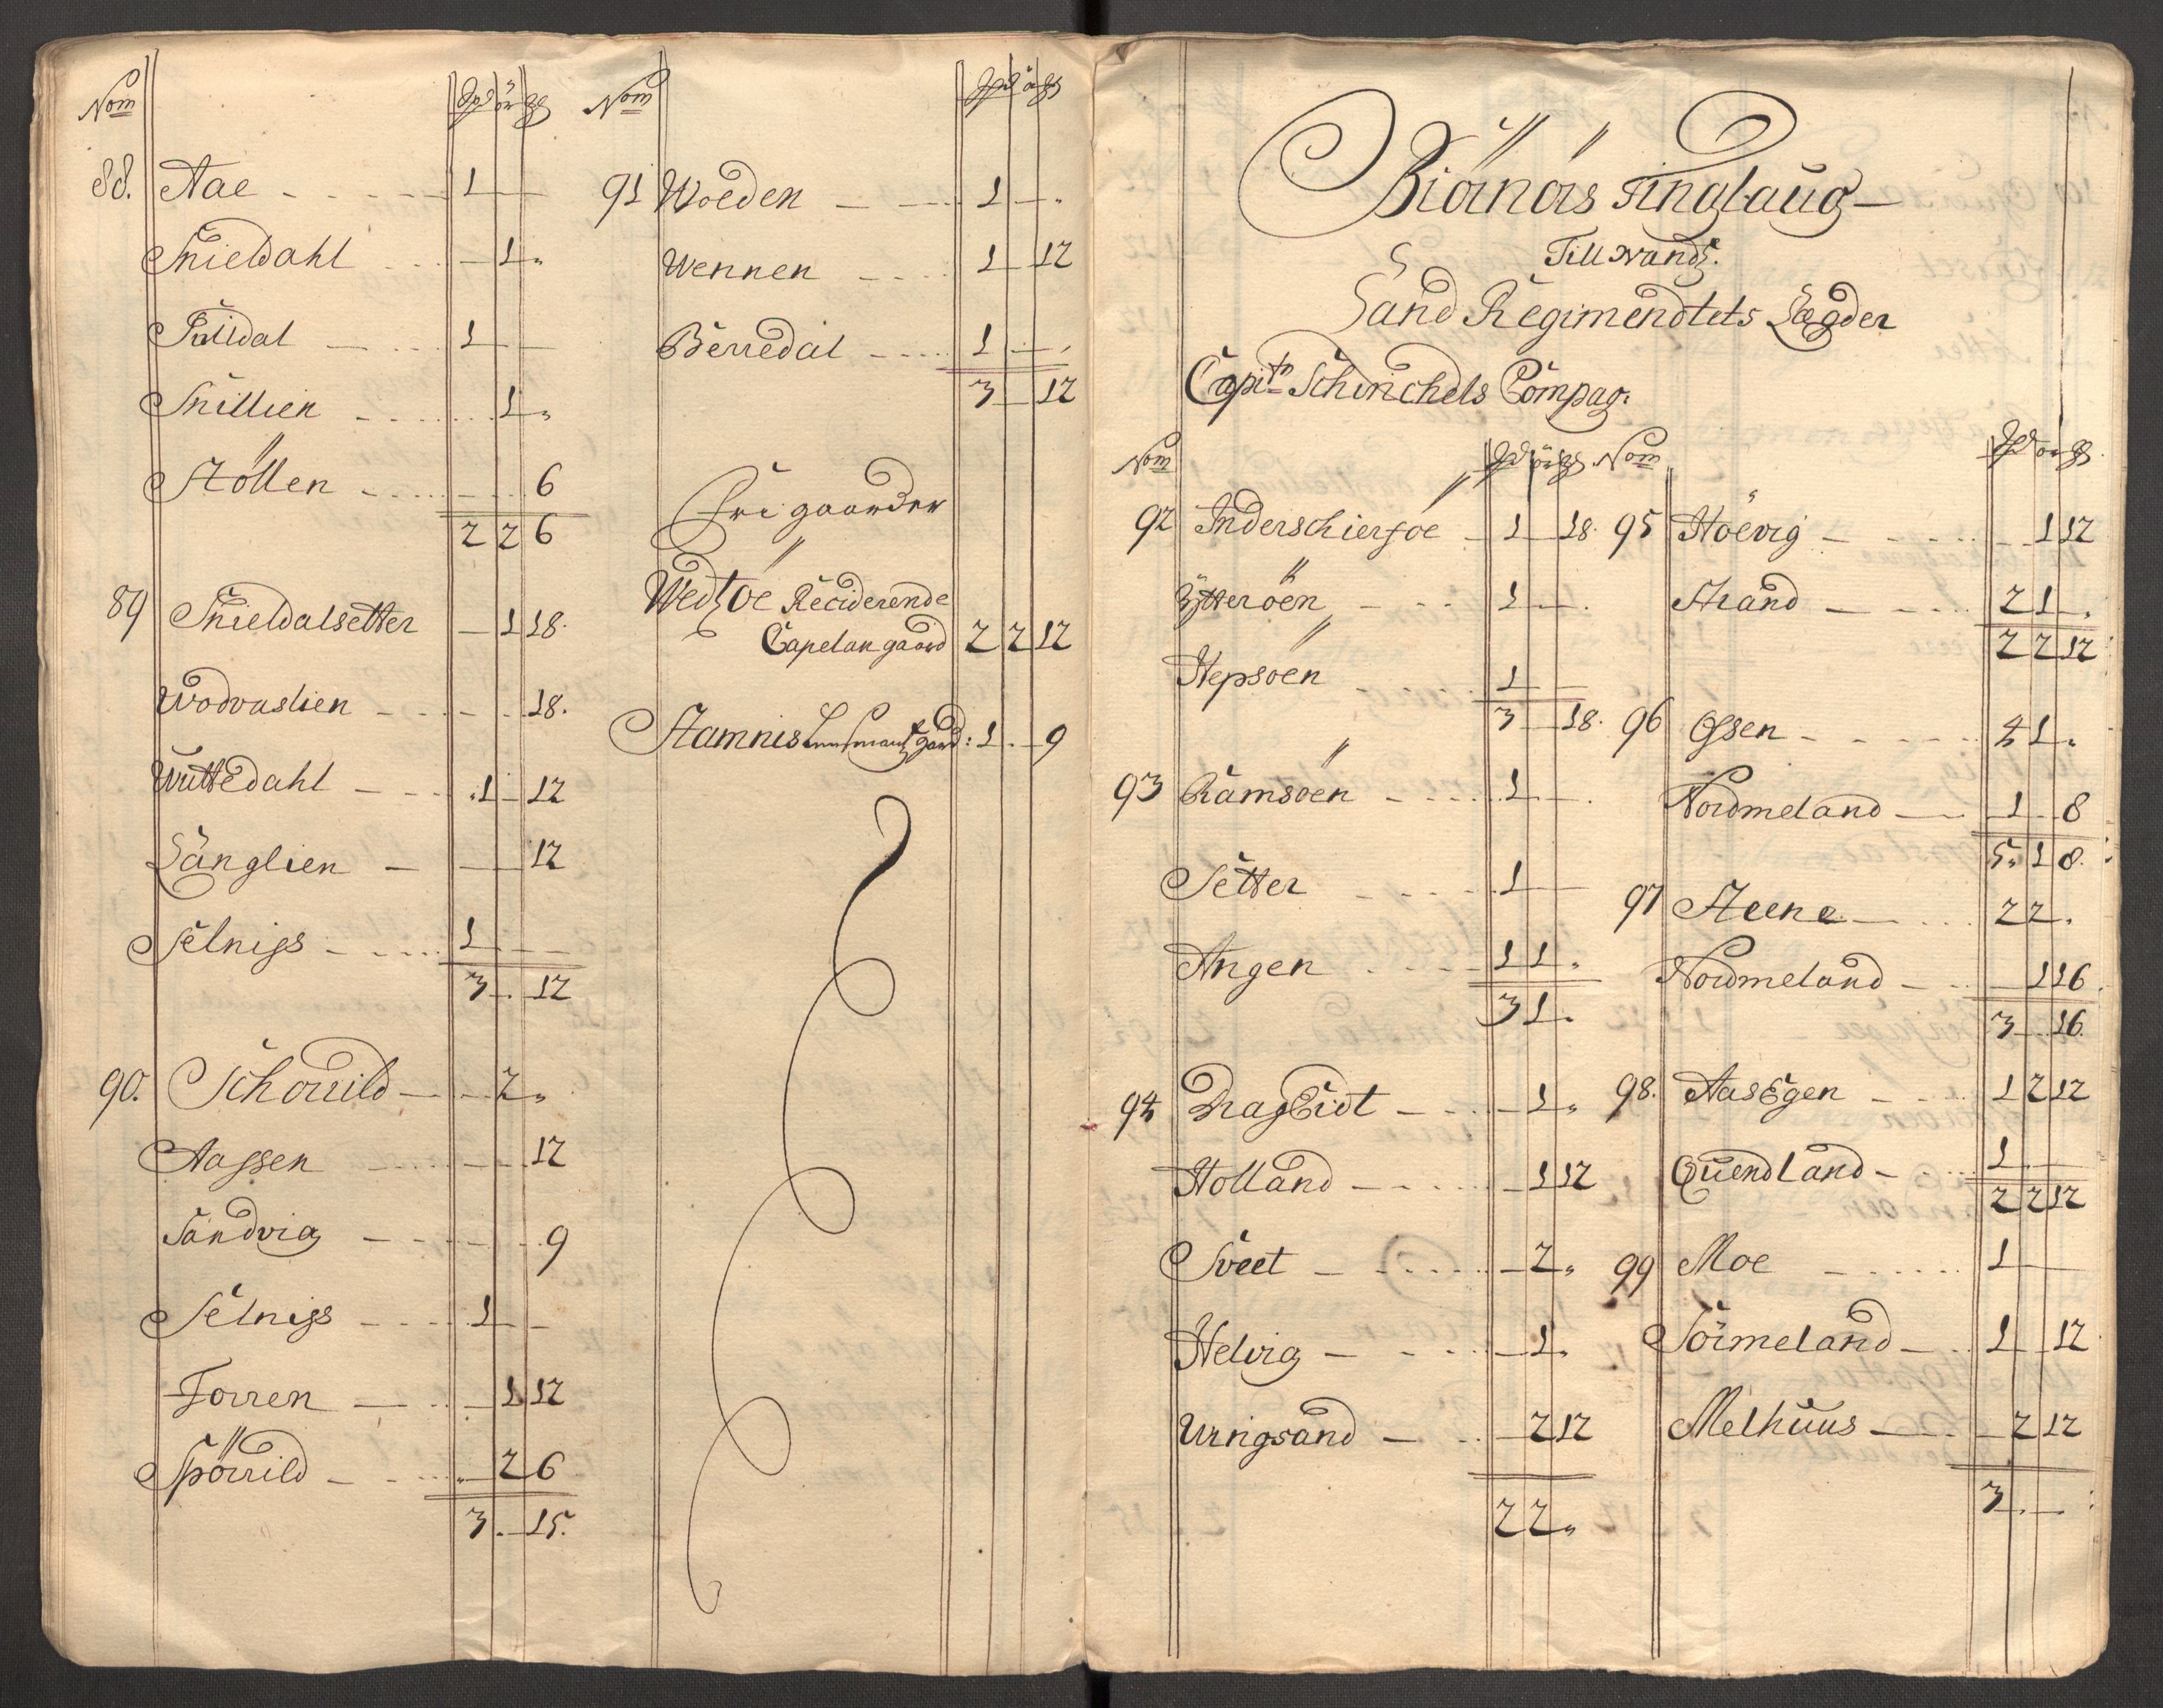 Nom Spd ör gs
88. Aae 1
Snieldahl 1 "
Pulldal 1
Snillien 1 "
Stöllen 6
2 2 6
89 Snieldalsetter 1 18.
Wodvaslien 18.
Wuttedahl 1 12
Länglien 12
Selnigs 1
3 12
90. Schouild 2 "
Aassen 12
Sandvig 9
Selnigs 1
Torren 1 12
Spörrild 2 6
3 15.
Nom Spd ör gs
91 Woeden 1
Wennen 1 12
Berredal 1
3 12
Fri gaarder
Wedtöe Reciderende
Capelan gaard 2 2 12
Stamnis Lensmands gaard: 1 9
Biörnörs Tinglaug
Till wands.
Land Regimendtets Lægder
Capit:n Schinchels Compag:
Nom Spd ör gs
92 Inderschierföe 1 18.
Ytteröen 1
Stepsöen 1
3 18.
93 Ramsöen 1
Setter 1
Angen 1 1 "
3 1 "
94 DragEidt 1 "
Holland 1 12
Sveet 2 "
Helvig 1 "
Uringsand 2 12
2 2 "
Nom Spd ör gs
95 Hoevig 1 12
Strand 2 1 "
2 2 12
96 Ossen 4 1 "
Nordmeland 1 8
5 " 1 8.
97 Steene 2 2 "
Nordmeland 1 16
3 16.
98. AasEgen 1 2 12
Quendland 1
2 2 12
99 Moe 1
Sörmeland 1 12
Melhuus 2 12
3